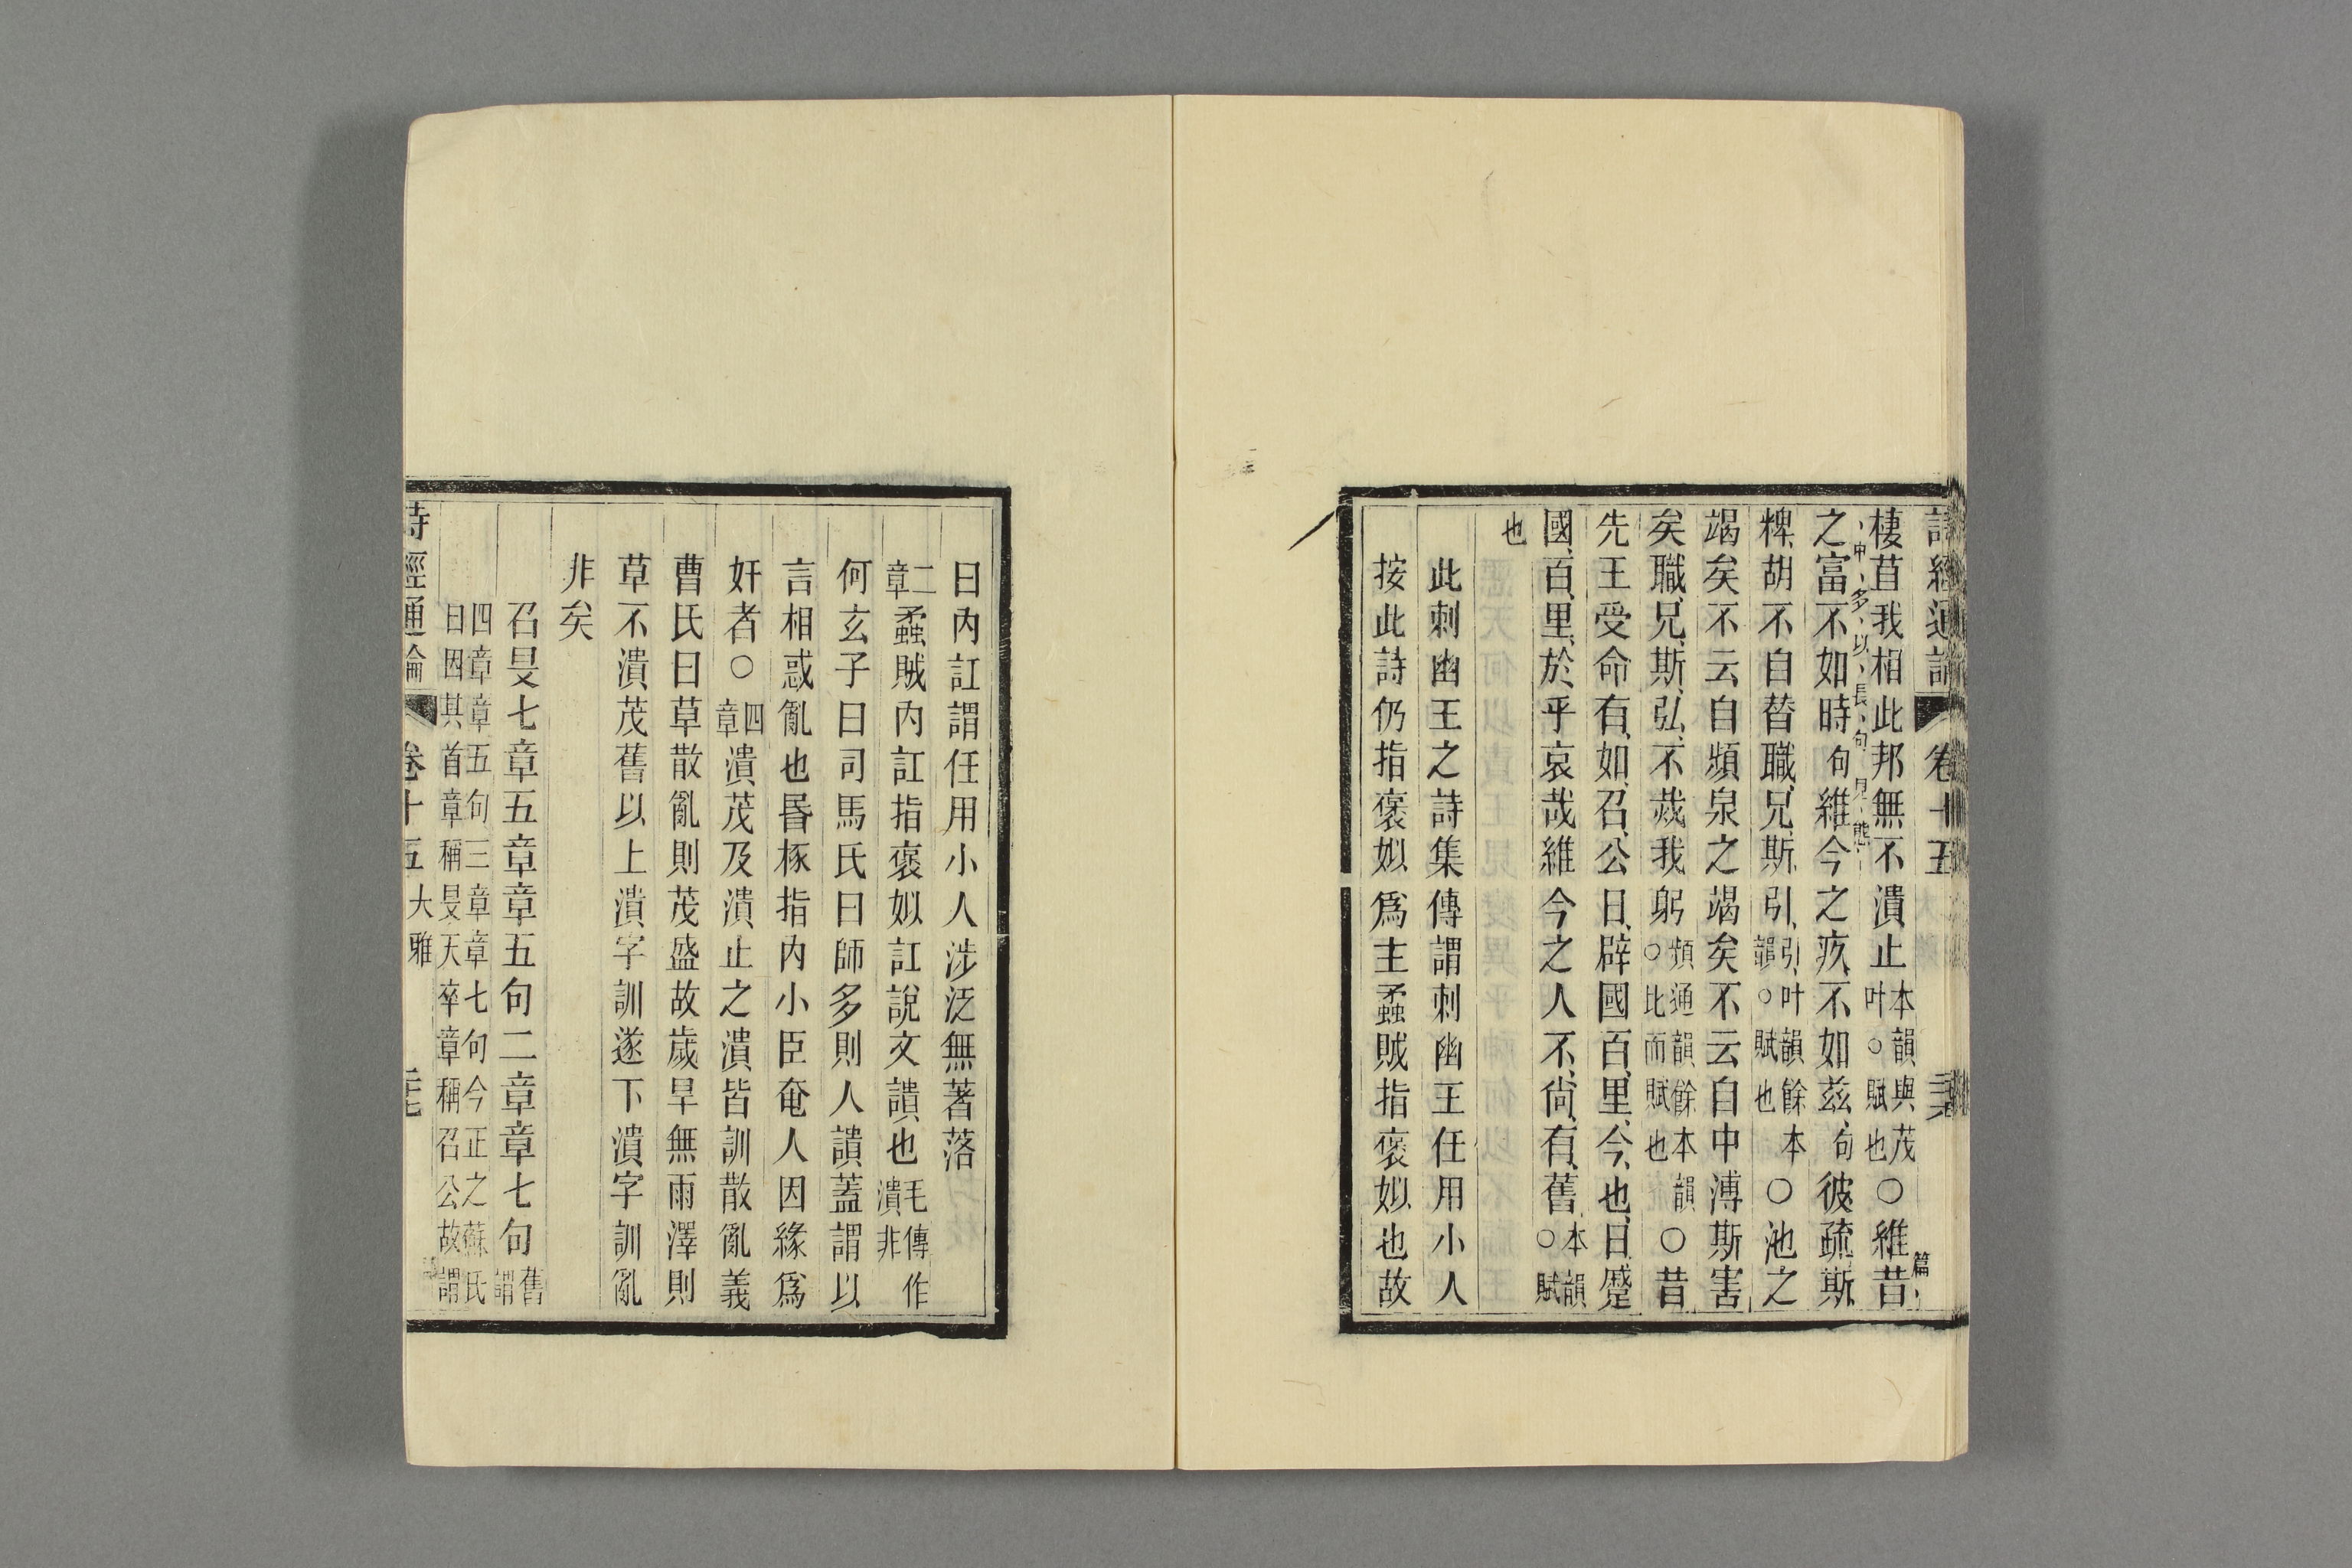 詩經通論 卷十五
棲苴我相此邦無不潰止本韻與茂叶○賦也○維昔
篇中多以長句見態
之富不如時句維今之疚不如茲句彼疏斯
粺胡不自替職兄斯引引叶韻餘本韻○賦也○池之
竭矣不云自頻泉之竭矣不云自中溥斯害
矣職兄斯弘不烖我躬頻通韻餘本韻○比而賦也○昔
先王受命有如召公日辟國百里今也日蹙
國百里於乎哀哉維今之人不尚有舊本韻○賦
也
此刺幽王之詩集傳謂刺幽王任用小人
按此詩仍指褒姒爲主蟊賊指褒姒也故
曰內訌謂任用小人涉泛無著落
二章蟊賊內訌指褒姒訌說文讃也毛傳作潰非
何玄子曰司馬氏曰師多則人讃蓋謂以
言相惑亂也昬椓指内小臣奄人因緣爲
奸者○四章潰茂及潰止之潰皆訓散亂義
曹氏曰草散亂則茂盛故歲旱無雨澤則
草不潰茂舊以上潰字訓遂下潰字訓亂
非矣
召旻七章五章章五句二章章七句舊謂
四章章五句三章章七句今正之蘇氏
曰因其首章稱旻天卒章稱召公故謂
詩經通論 卷十五 大雅